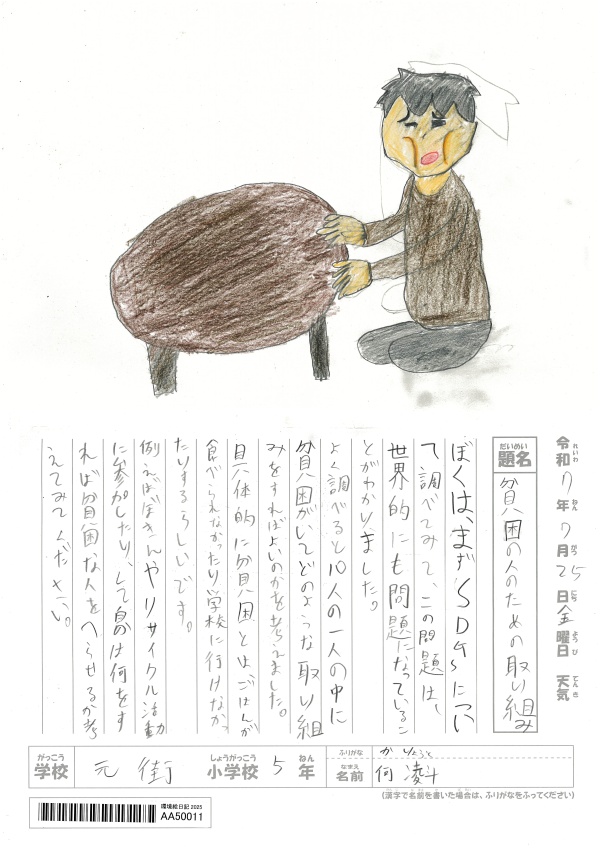 令和7年7月25日金曜日 天気
れいわ ねん がつ にち ようび てんき
だいめい
題名
貧困の人のための取り組み
ぼくは、まずSDGsについ
て調べてみて、この問題は、
世界的にも問題になっているこ
とがわかりました。
よく調べると10人の一人の中に
貧困がいてどのような取り組
みをすればよいのかを考えました。
具体的に貧困とはごはんが
食べられなかったり学校に行けなかっ
たりするらしいです。
例えばぼきんやリサイクル活動
に参加したり、して
は何をす
れば貧困な人をへらせるか考
えてみてください。
がっこう
学校
元街
しょうがっこう
小学校
5
ねん
年
ふりがな
か りょうと
なまえ
名前
何 凌斗
(漢字で名前を書いた場合は、ふりがなをふってください)
環境絵日記 2025
AA50011